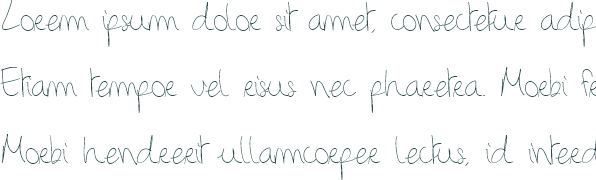 Lorem ipsum dolor sit amet, consectetur adip
Etiam tempor vel risus nec pharetra. Morbi fe
Morbi hendrerit ullamcorper lectus, id interd